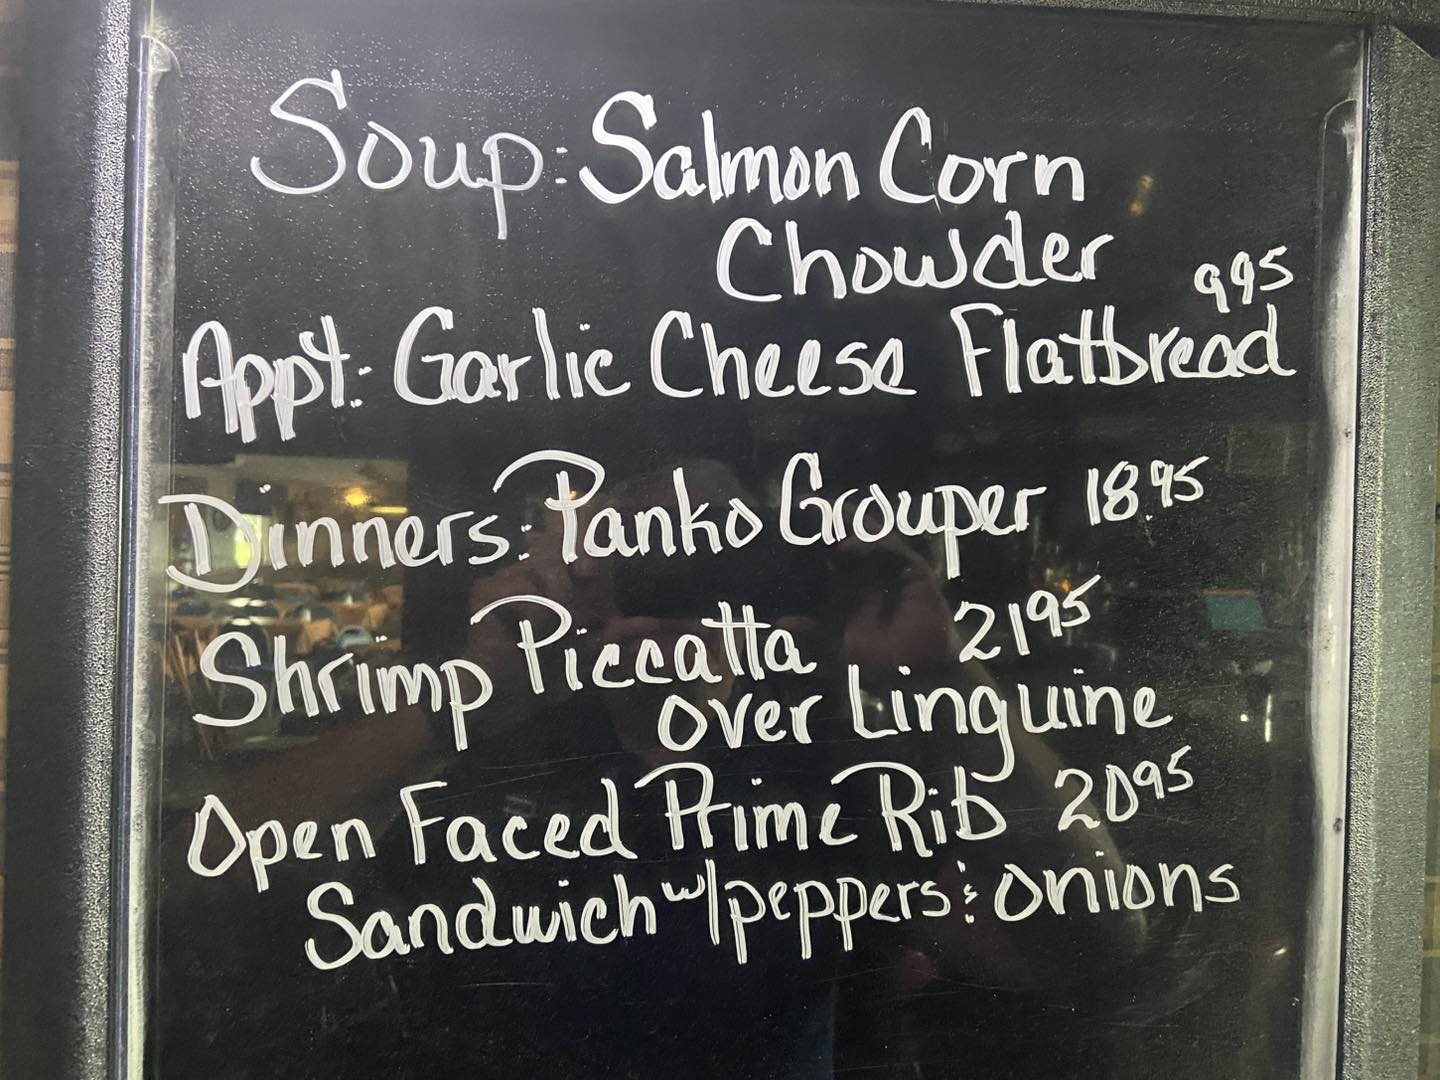 Soup: Salmon Corn
Chowder
Appt: Garlic Cheese Flatbread 995
Dinners: Panko Grouper 18.95
Shrimp Piccatta 2195
over Linguine
Open Faced Prime Rib 2095
Sandwich w/peppers & onions